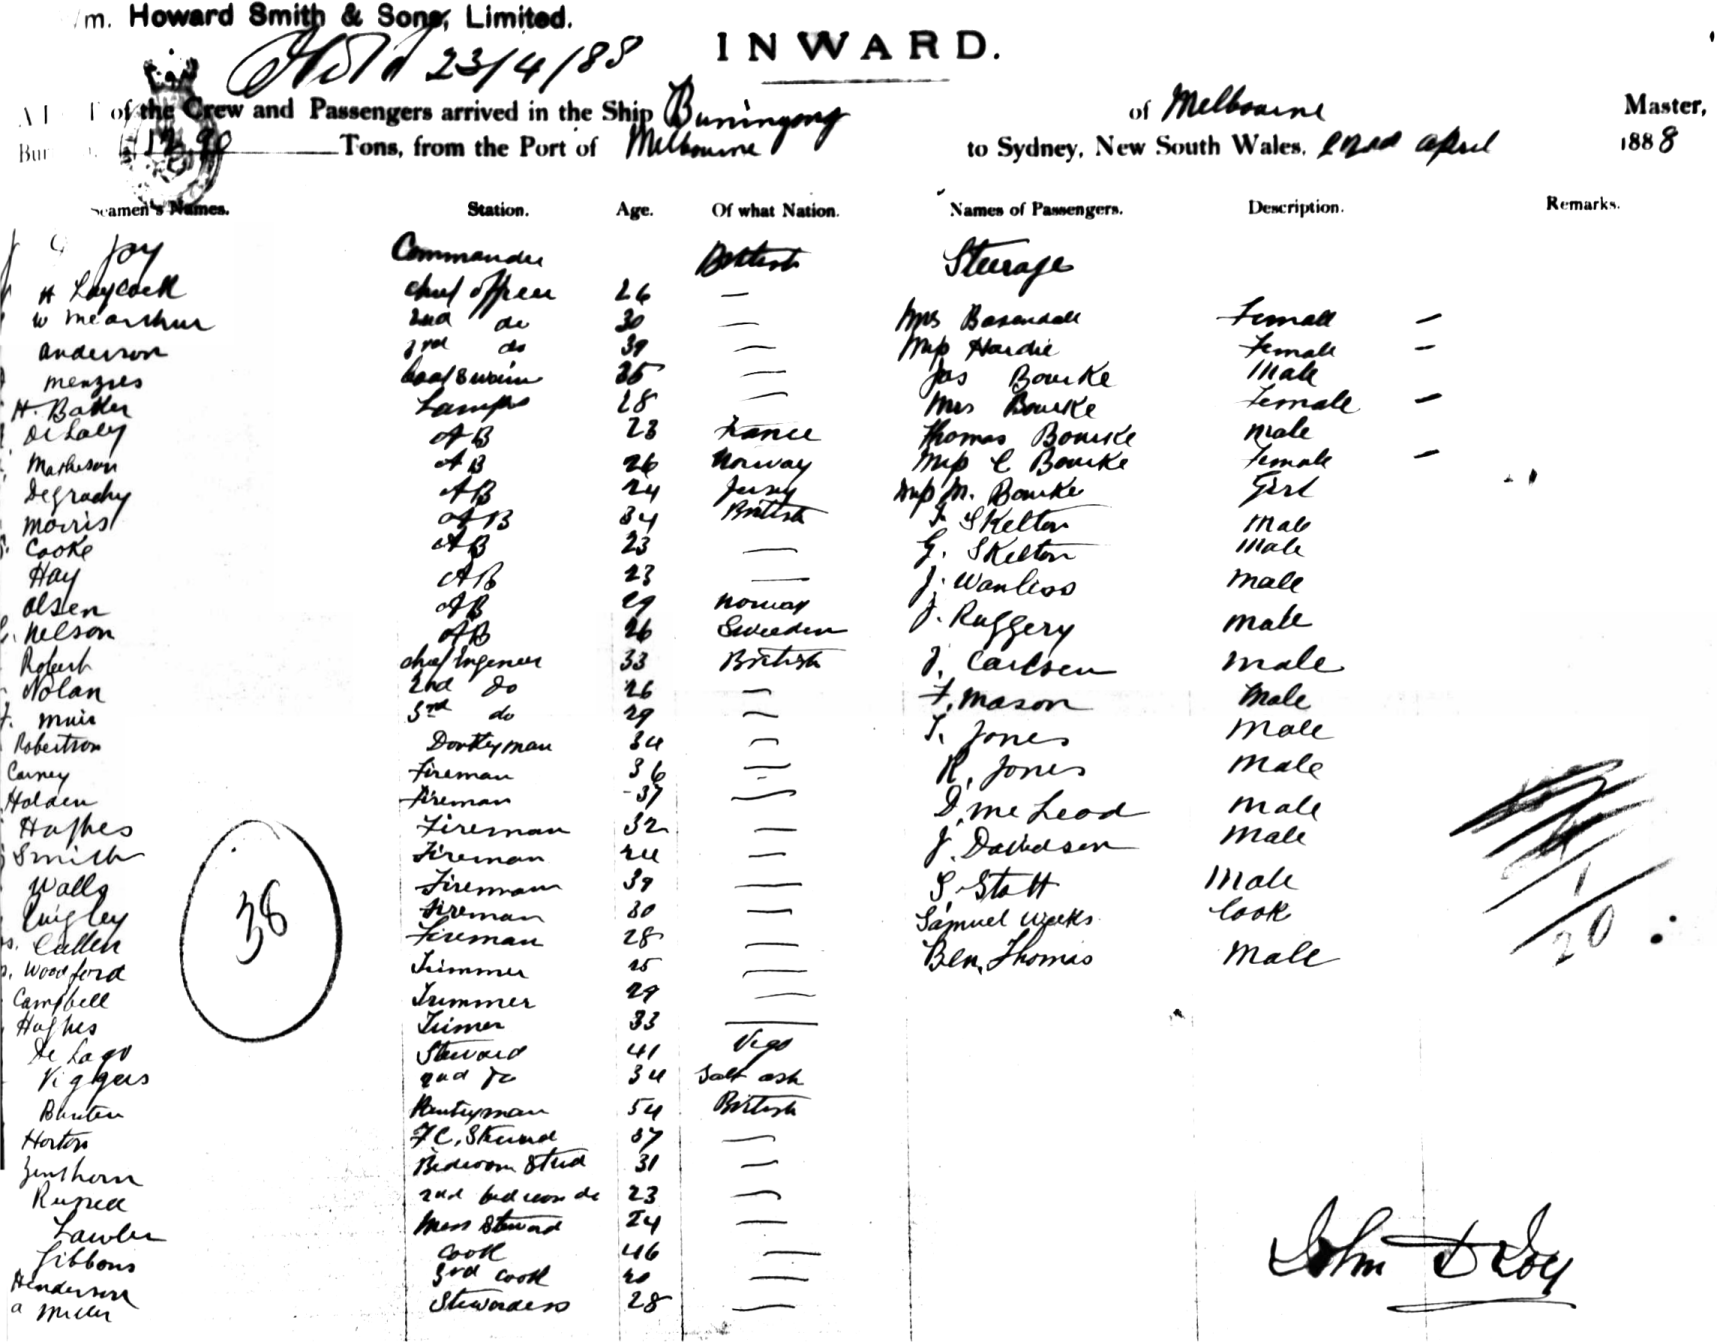 m. Howard Smith & Sons, Limited.
23/4/88
INWARD.
of the Crew and Passengers arrived in the Ship Buningong of Melbourne Master,
Tons, from the Port of Melbourne to Sydney, New South Wales, 22nd April 1888
Seamen's Names. Station. Age. Of what Nation. Names of Passengers. Description. Remarks.
Joy Commander British Steerage
H Laycock chief officer 26 —
W McArthur 2nd do 30 — Mrs Basendall Female —
Anderson 3rd do 39 — Miss Hardie Female —
Menzies boatswain 35 — Jas Bourke Male
H. Baker Lamps 28 — Mrs Bourke Female —
De Laey AB 23 France Thomas Bourke Male
Matheson AB 26 Norway Miss C Bourke Female —
Degrachy AB 24 Jersey Miss M. Bourke Girl
Morris AB 34 British J. Skelton Male
Cooke AB 23 — G. Skelton Male
Hay AB 23 — J. Wanless Male
Olsen AB 29 Norway J. Ruggery Male
Nelson AB 26 Sweeden J. Carlsen Male
Robert chief Ingeneer 33 British F. Mason Male
Nolan 2nd do 26 — T. Jones Male
Muir 3rd do 29 — R. Jones Male
Robertson Donkeyman 34 — D. McLeod Male
Carney Fireman 36 — J. Davidson Male
Holden Fireman 37 — S. Stott Male
Hughes Fireman 32 — Samuel Weeks Cook
Smith Fireman 24 — Ben. Thomas Male
Walls Fireman 39 —
Quigley Fireman 30 —
Cullen Fireman 28 —
Woodford Trimmer 25 —
Campbell Trimmer 29 —
Hughes Trimer 33 —
De Lago Steward 41 Vigo
Viggers 2nd do 34 Salt ash
Bunten Pantryman 54 British
Horton F.C. Steward 37 —
Bedroom Stud 31 —
Russell 2nd bedroom do 23 —
Lawler Mess Steward 24 —
Gibbons Cook 46 —
Henderson 3rd cook 20 —
a Miller Stewardess 28 —
38
1
20
John D Joy